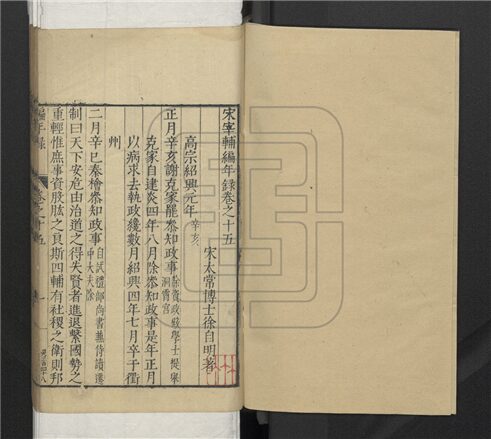 宋宰輔編年錄卷之十五
宋太常博士徐自明著
高宗紹興元年辛亥
正月辛亥謝克家罷叅知政事除資政殿學士提舉洞霄宮
克家自建炎四年八月除叅知政事是年正月
以病求去執政纔數月紹興四年七月卒于衢
州
二月辛巳秦檜叅知政事自試禮部尚書兼侍讀遷中大夫除
制曰天下安危由治道之得失賢者進退繫國勢之
重輕惟庶事資股肱之良斯四輔有社稷之衛則邦
編年錄
卷之十五